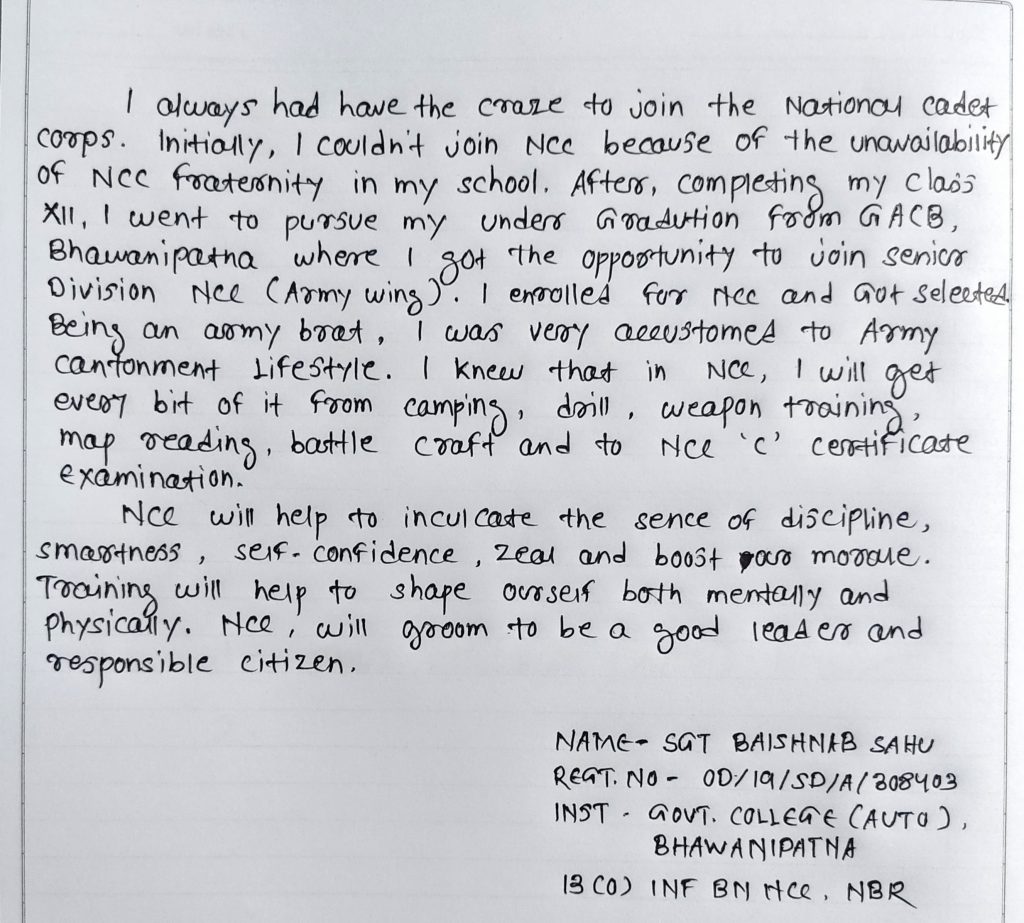 I always had have the craze to join the National cadet
corps. Initially, I couldn't join NCC because of the unavailability
of NCC fraternity in my school. After, completing my Class
XII, I went to pursue my under Gradution from GACB,
Bhawanipatna where I got the opportunity to join senior
Division NCC (Army wing). I enrolled for NCC and Got selected.
Being an army brat, I was very accustomed to Army
cantonment Lifestyle. I knew that in NCC, I will get
every bit of it from camping, drill, weapon training,
map reading, battle craft and to NCC 'C' certificate
examination.
NCC will help to inculcate the sence of discipline,
smartness, self-confidence, zeal and boost our morale.
Training will help to shape ourself both mentally and
physically. NCC, will groom to be a good leader and
responsible citizen.
NAME- SGT BAISHNAB SAHU
REGT. NO - OD/19/SD/A/308403
INST - GOVT. COLLEGE (AUTO),
BHAWANIPATNA
13 (O) INF BN NCC, NBR